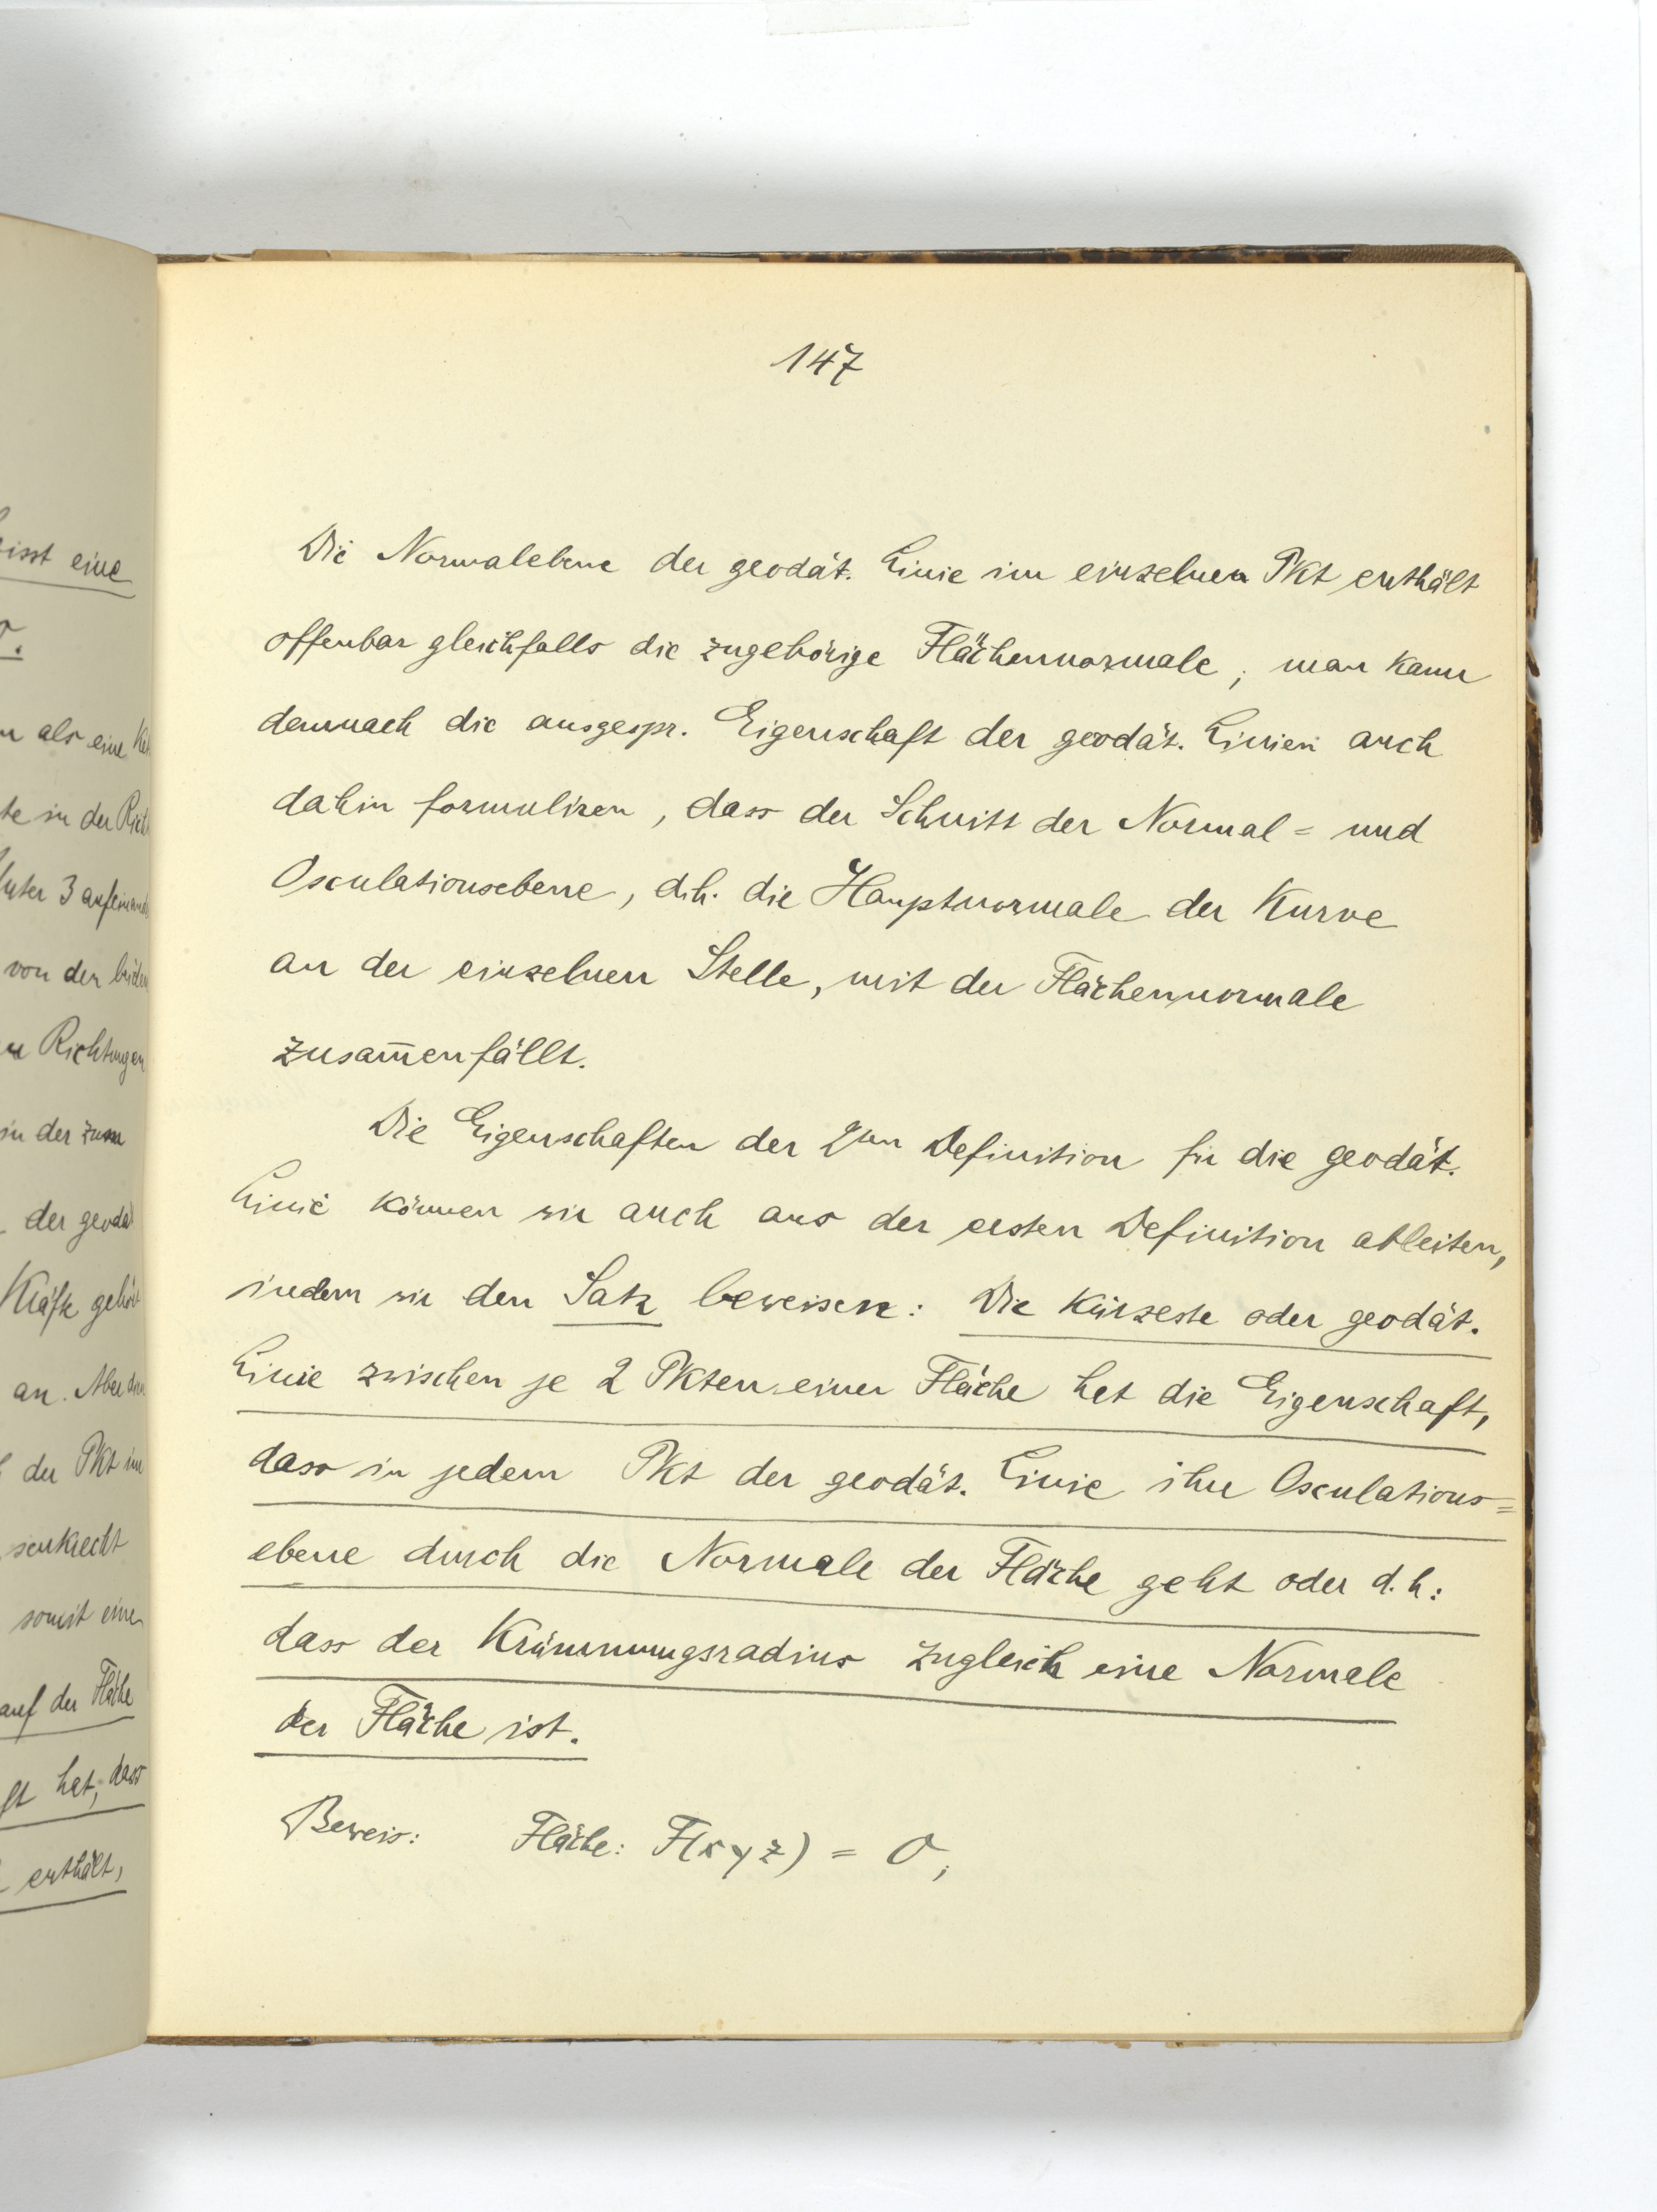 isst eine
als eine
te in der
3
von den
Richtungen
in der
der geodät
Kräfte
an. Aber
der Pkt im
senkrecht
somit eine
auf der Fläche
hat, dass
enthält,
147
Die Normalebene der geodät. Linie im einzelnen Pkt enthält
offenbar gleichfalls die zugehörige Flächennormale; man kann
demnach die ausgespr. Eigenschaft der geodät. Linien auch
dahin formuliren, dass der Schnitt der Normal= und
Osculationsebene, d.h. die Hauptnormale der Kurve
an der einzelnen Stelle, mit der Flächennormale
zusam̅enfällt.
Die Eigenschaften der 2ten Definition für die geodät.
Linie können wir auch aus der ersten Definition ableiten,
indem wir den Satz beweisen: Die kürzeste oder geodät.
Linie zwischen je 2 Pkten einer Fläche hat die Eigenschaft,
dass in jedem Pkt der geodät. Linie ihre Osculations=
ebene durch die Normale der Fläche geht oder d.h:
dass der Krümmungsradius zugleich eine Normale
der Fläche ist.
Beweis: Fläche: F(x y z) = 0;